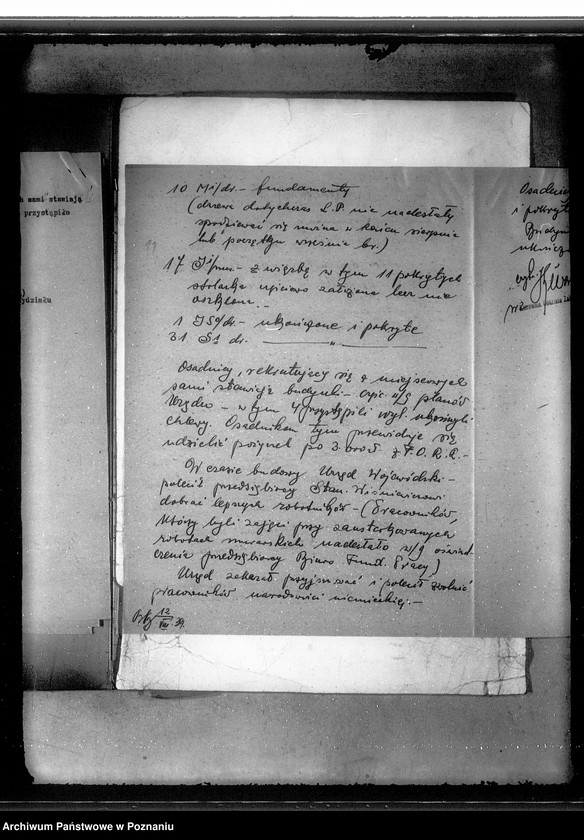 h sami stawiają
przystąpiło
ydziału
10 M1/dr. - fundamenty
(drzewa dotychczas L.P. nie nadesłały
spodziewać się można w końcu sierpnia
lub początku września br.)
17 - z więźbą w tym 11 pokrytych
stolarka częściowo założona lecz nie
oszklona. -
1 dr. - ukończone i pokryte
31 S1 dr. " 
Osadnicy, rekrutujący się z miejscowych
sami stawiają budynki - w/g planów
Urzędu - w tym 4 przystąpili wyk. ukończyli
chlewy. Osadnikom tym przewiduje się
udzielić pożyczek po 3.000 zł z F.O.R.R. -
W czasie budowy Urząd Wojewódzki -
polecił przedsiębiorcy Stan. Wiśniewskiemu
dobrać lepszych robotników - (Pracowników,
którzy byli zajęci przy
robotach murarskich nadesłało w/g oświad-
czenia przedsiębiorcy Biuro Fund. Pracy)
Urząd zakazał przyjmować i polecił zwolnić
pracowników narodowości niemieckiej. -
12
VIII 39.
Osadni
i pokryt
Budyn
ukończ
Archiwum Państwowe w Poznaniu